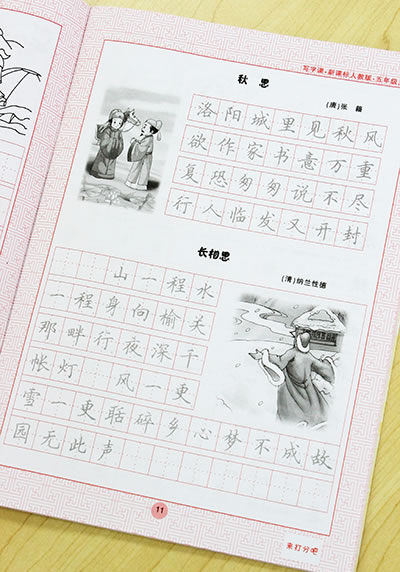 写字课·新课标人教版·五年级
秋思
(清)张籍
洛阳城里见秋风
欲作家书意万重
复恐匆匆说不尽
行人临发又开封
长相思
(清)纳兰性德
山一程水
一程身向榆关
那畔行夜深千
帐灯 风一更
雪一更聒碎乡心梦不成故
园无此声
11
来打分吧